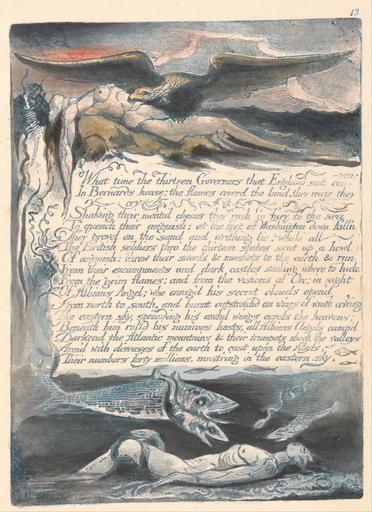 13
What time the Thirteen Governors that England sent con
-vene
In Bernards house; the flames coverd the land, they rouze they
cry
Shaking their mental chains they rush in fury to the sea
To quench their anguish; at the feet of Washington down falln
They grovel on the sand and writhing lie, while all
The British soldiers thro the thirteen states sent up a howl
Of anguish: threw their swords & muskets to the earth & ran
From their encampments and dark castles seeking where to hide
From the grim flames; and from the visions of Orc; in sight
Of Albions Angel; who enrag'd his secret clouds open'd
From north to south, and burnt outstretchd on wings of wrath cov'ring
The eastern sky, spreading his awful wings across the heavens;
Beneath him rolld his num'rous hosts, all Albions Angels camp'd
Darkend the Atlantic mountains & their trumpets shook the valleys
Arm'd with diseases of the earth to cast upon the Abyss,
Their numbers forty millions, must'ring in the eastern sky.